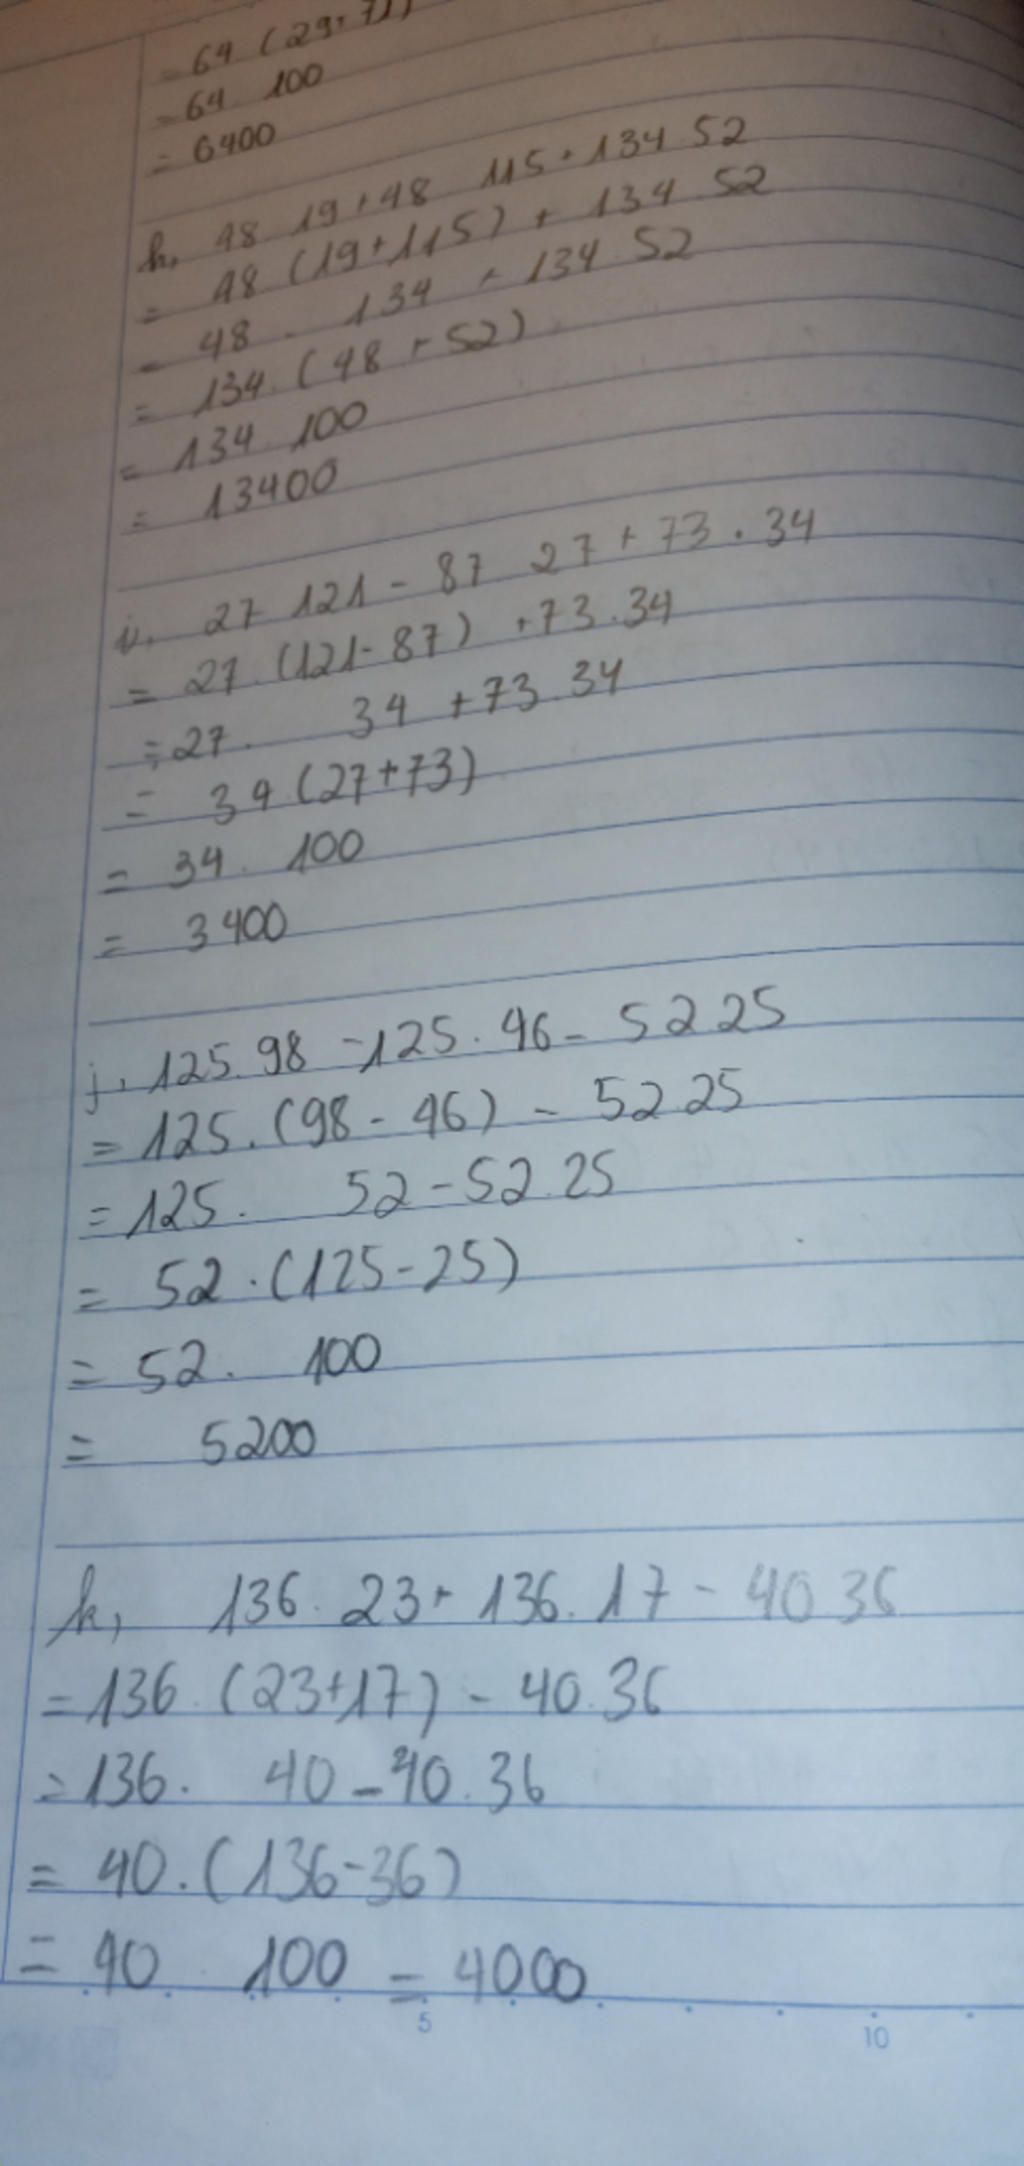 = 64 (29+71)
= 64 100
= 6400
h, 48 19+48 115+134 52
= 48 (19+115) + 134 52
= 48 . 134 + 134 52
= 134. (48 + 52)
= 134 100
= 13400
i, 27 121 - 87 27 + 73 . 34
= 27 (121-87) +73.34
= 27. 34 +73 34
= 34 (27+73)
= 34. 100
= 3400
j, 125.98 -125.46- 52 25
= 125.(98-46) - 52 25
= 125. 52-52.25
= 52.(125-25)
= 52. 100
= 5200
k, 136. 23+ 136. 17- 40 36
= 136.(23+17) - 40.36
= 136. 40-40.36
= 40.(136-36)
= 40 100 = 4000
5 10